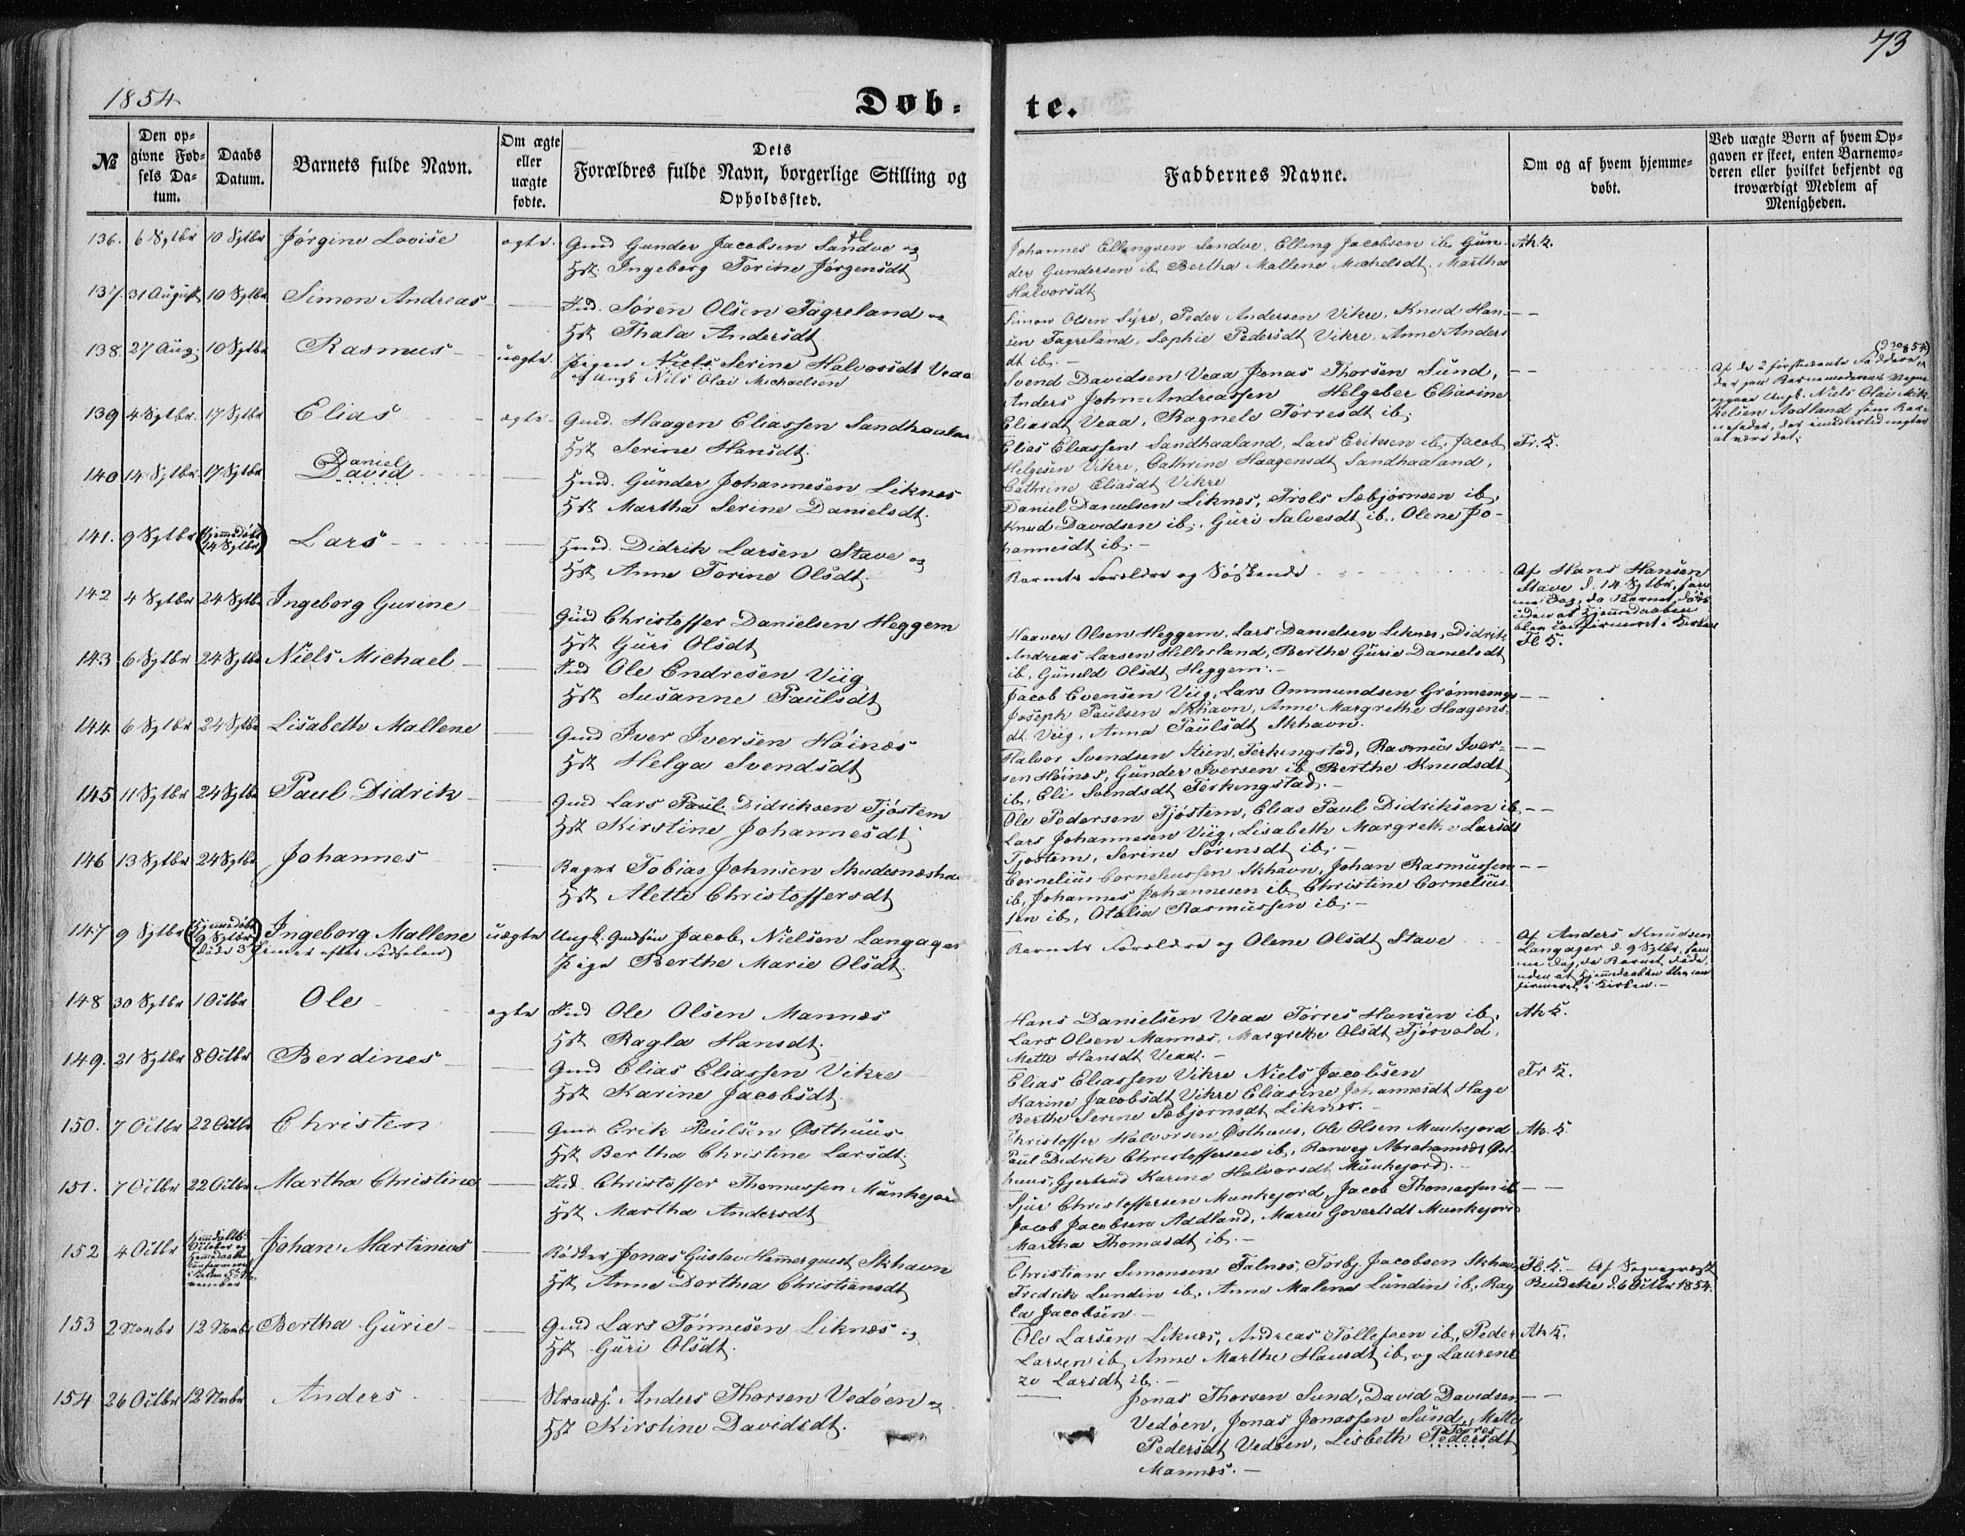 73
1854
Døb-
te.
№
Den op-
givne Fød-
sels Da-
tum.
Daabs
Datum.
Barnets fulde Navn.
Om ægte
eller
uægte
fødte.
Dets
Forældres fulde Navn, borgerlige Stilling og
Opholdssted.
Faddernes Navne.
Om og af hvem hjemme-
døbt.
Ved uægte Børn af hvem Op-
gaven er skeet, enten Barnemo-
deren eller hvilket bekjendt og
troværdigt Medlem af
Menigheden.
136. 6 Sptbr 10 Sptbr Jørgine Lovise ægte Gmd Gunder Jacobsen Sandve og
Hst. Ingeborg Torine Jørgensdt
Johannes Ellingsen Sandve, Elling Jacobsen ib. Gun-
der Gundersen ib. Bertha Mallene Michelsdt, Martha
Halvorsdt
Ak.
137. 31 August 10 Sptbr Simon Andreas Ind. Søren Olsen Fagreland og
Hst Thala Andersdt
Simon Olsen Syre, Peder Andersen Vikre, Knud Han-
sen Fagreland, Sophie Pedersdt Vikre, Anne Anders
dt ib. -
138. 27 Aug. 10 Sptbr Rasmus uægte Pigen Niels Serine Halvorsdt Veaa
og Ungk Nils Olai Michaelsen
Svend Davidsen Veaa Jonas Thorsen Sund,
Anders John-Andreassen Helgeber Eliasine
Eliasdt Veaa, Ragnele Torresdt ib.
Af de 2 førstnævnte Faddere,
139 4 Sptbr. 17 Sptbr Elias ægte Gmd. Haagen Eliassen Sandhaaland
Hst Serine Hansdt.
Elias Eliassen Sandhaaland, Lars Eriksen ib. Jacob
Helgesen Vikre, Cathrine Haagensdt Sandhaaland,
Cathrine Eliasdt Vikre
140 14 Sptbr 17 Sptbr Daniel
David
Hmd. Gunder Johannesen Liknes
Hst Martha Serine Danielsdt.
Daniel Danielsen Liknes, Trols Sæbjørnsen ib.
Knud Davidsen ib., Guri Salvesdt ib., Olene Jo-
hannesdt ib. -
141. 9 Sptbr (Hjemmedøbt
14 Sptbr) Lars Hmd. Didrik Larsen Stave og
Hst Anne Torine Olsdt.
Barnets Forældre og Søskende
Af Hans Hansen
Stave d. 14 Sptbr, sam-
me Dag, da Barnet døde
uden at Hjemmedaaben
blev confirmeret i Kirken
142 4 Sptbr 24 Sptbr Ingeborg Gurine Gmd Christoffer Danielsen Heggem
Hst Guri Olsdt
Haaver Olsen Heggem, Lars Danielsen Liknes, Didrik
Andreas Larsen Hillesland, Berthe Gurie Danielsdt
ib. Guneld Olsdt Heggem. -
143 6 Sptbr 24 Sptbr Niels Michael Ind Ole Endresen Viig
Hst Susanne Paulsdt
Jacob Evensen Viig, Lars Ommundsen Grønnings
Joseph Paulsen Skhavn, Anne Margrethe Haagens-
dt Viig, Anna Paulsdt Skhavn.
144 6 Sptbr 24 Sptbr Lisabeth Mallene Gmd Iver Iversen Høines
Hst Helga Svendsdt
Halvor Svendsen Stien, Ferkingstad, Rasmus Iver-
sen Høines, Gunder Iversen ib. Berthe Knudsdt
ib., Eli Svendsdt Ferkingstad. -
145 11 Sptbr 24 Sptbr Paul Didrik Gmd Lars Paul Didriksen Tjøstem
Hst Kirstine Johannesdt
Ole Pedersen Tjøstem, Elias Paul Didriksen ib.
Lars Johannesen Viig, Lisabeth Margrethe Larsdt
Tjøstem, Serine Sørensdt ib. -
146 13 Sptbr 24 Sptbr Johannes Bager Tobias Johnsen Skudesneshavn
Hst Alette Christoffersdt
Cornelius Corneliussen Skhavn, Johan Rasmussen
ib, Johannes Johannesen ib, Christine Cornelius
sen ib, Otalia Rasmussen ib. -
147 9 Sptbr (Hjemmedøbt
9 Sptbr) Ingeborg Mallene uægte Ungk. Jacob Nielsen Langager
Pige Berthe Marie Olsdt.
Barnets Forældre og Olene Olsdt Stave
Af Anders Knudsen
Langager d. 9 Sptbr, sam-
me Dag, da Barnet døde,
uden at Hjemmedaaben blev con
firmeret i Kirken. -
148 30 Sptbr 1 Octbr Ole ægte Ind Ole Olsen Mannes
Hst Ragla Hansdt.
Hans Danielsen Veaa Torres Hansen ib.
Lars Olsen Mannes, Margrethe Olsdt Tjøsvold,
Mette Hansdt Veaa. -
149. 21 Sptbr 8 Octbr Berdines Gmd Elias Eliassen Vikre
Hst Karine Jacobsdt.
Elias Eliassen Vikre Niels Jacobsen
Karine Jacobsdt Vikre Eliasine Johannesdt Hage
Berthe Serine Sæbjørnsdt Liknes. -
150. 7 Octbr 22 Octbr Christen Gmd Erik Paulsen Østhuus
Hst Bertha Christine Larsdt.
Christoffer Halvorsen Østhuus, Ole Olsen Munkejord
Paul Didrik Christoffersen ib, Ranveg Abrahamsdt Øst-
huus, Gjertrud Karine Halvorsdt Munkejord. -
151. 7 Octbr 22 Octbr Martha Christine Ind. Christoffer Thomassen Munkejord
Hst Martha Andersdt
Sjur Christoffersen Munkejord, Jacob Thomassen ib
Jacob Jacobsen Aadland, Marie Govertsdt Munkejord
Martha Thomasdt ib. -
152 4 Octbr Johan Martinius Jonas Gustav Hammerquist Skhavn
Hst Anne Dorthea Christiansdt
Christian Simonsen Falnes, Torbj. Jacobsen Skhavn
Fredrik Lundin ib, Anne Malene Lundin ib, Rag
la Jacobsen -
Af Sognepræst
Budeke d. 6 Octbr 1854.
153 2 Novbr 12 Novbr Bertha Gurie Gmd Lars Tønnesen Liknes og
Hst Guri Olsdt.
Ole Larsen Liknes, Andreas Tollefsen ib, Peder
Larsen ib, Anne Marthe Hansdt ib. og Laurent
ze Larsdt ib. -
154 26 Octbr 12 Novbr Anders Strands. Anders Thorsen Vedøen og
Hst Kirstine Davidsdt.
Jonas Thorsen Sund, David Davidsen
Vedøen, Jonas Jonassen Sund, Mette
Pedersdt Vedøen, Lisbeth Torres
Pedersdt
Mannes. -